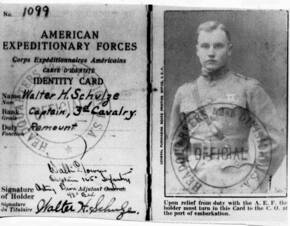 No. 1099
AMERICAN
EXPEDITIONARY FORCES
Corps Expéditionnaires Américains
CARTE D'IDENTITÉ
IDENTITY CARD
Name Walter H. Schulze
Nom
Rank Captain, 3rd Cavalry.
Grade
Duty Remount
Adjutant General
Signature
of Holder
Signature
du Titulaire Walter H. Schulze.
HEADQUARTERS
OFFICIAL
Upon relief from duty with the A. E. F. the
holder must turn in this Card to the C. O. at
the port of embarkation.